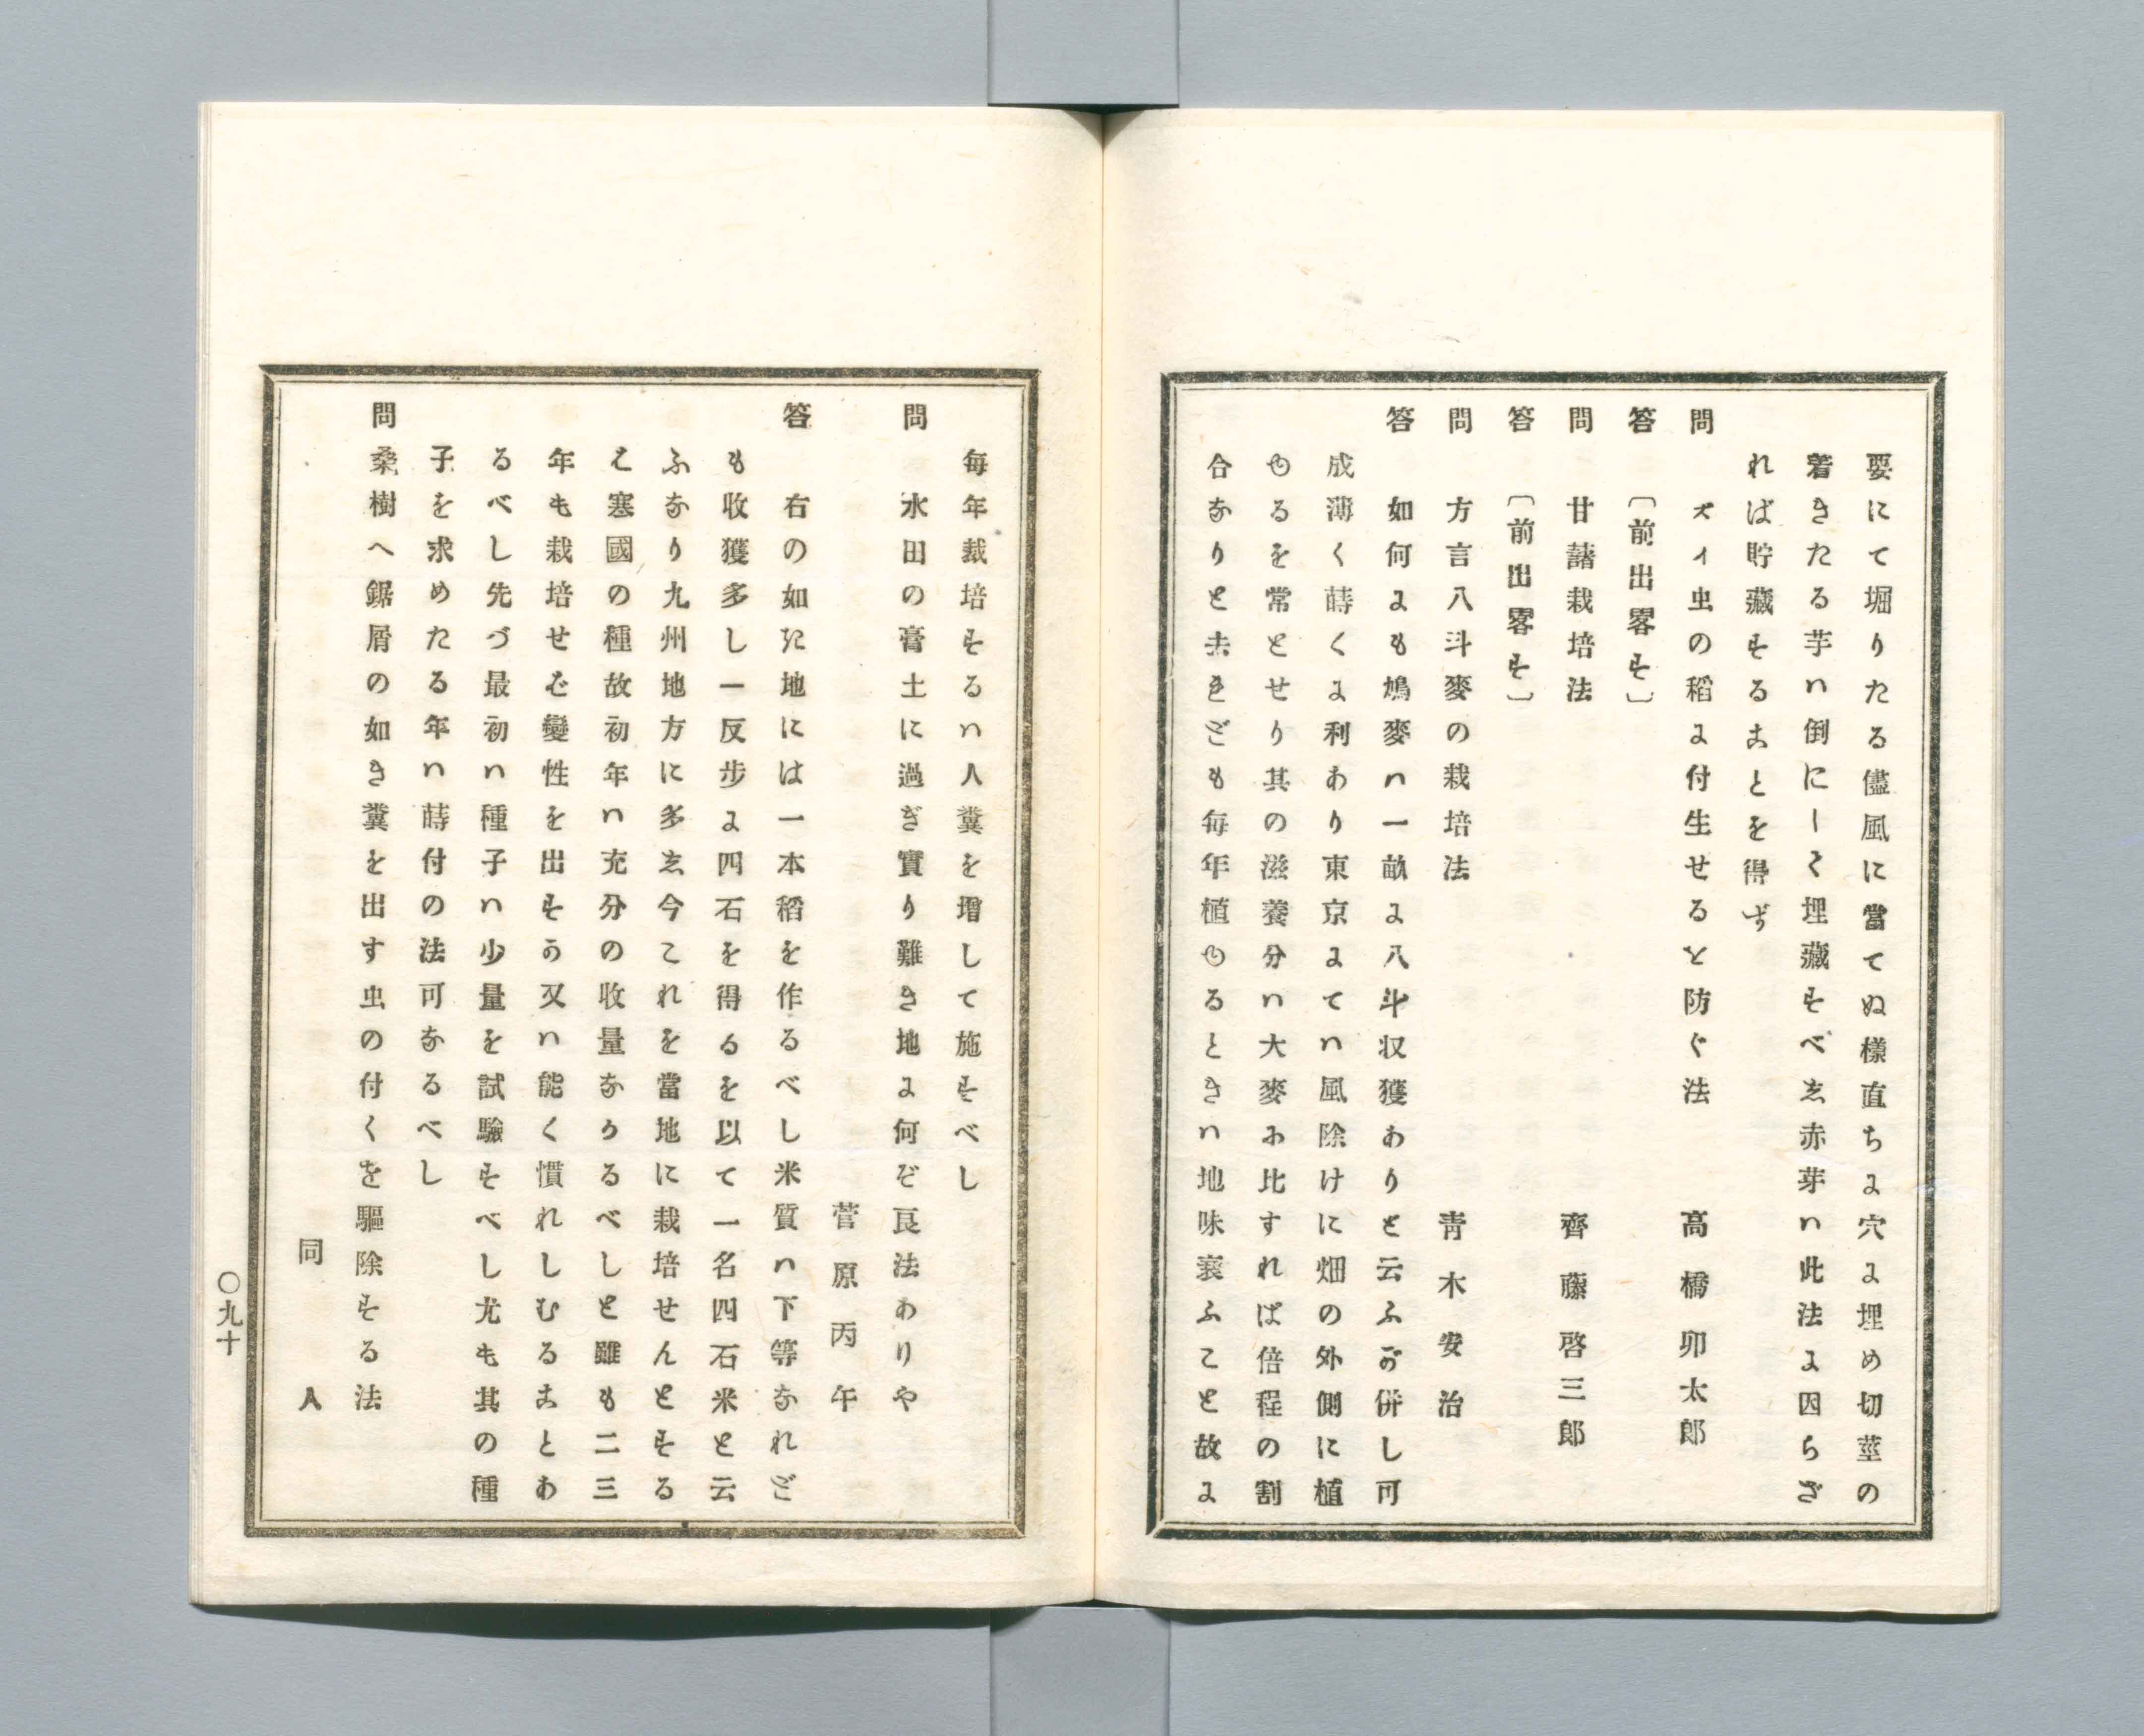 要にて堀りたる儘風に當てぬ樣直ちに穴に埋め切莖の
着きたる芋ハ倒にしく埋藏すべし赤芽ハ此法に因らざ
れば貯藏することを得ず
問　ズイ虫の稻に付生せると防ぐ法　高橋卯太郎
答　〔前出畧す〕
問　甘藷栽培法　齊藤啓三郎
答　〔前出畧す〕
問　方言八斗麥の栽培法　靑木安治
答　如何にも鳩麥ハ一畝に八斗収獲ありと云ふが併し可
成薄く蒔くに利あり東京にてハ風除けに畑の外側に植
ゆるを常とせり其の滋養分ハ大麥に比すれば倍程の割
合なりと去れども毎年植ゆるときハ地味衰ふこと故に
毎年裁培するハ人糞を増して施すべし
問　水田の膏土に過ぎ實り難き地に何ぞ良法ありや
菅原丙午
答　右の如き地には一本稻を作るべし米質ハ下等なれど
も收獲多し一反歩に四石を得るを以て一名四石米と云
ふなり九州地方に多し今これを當地に栽培せんとする
に寒國の種故初年ハ充分の收量なかるべしと雖も二三
年も栽培せば變性を出すか又ハ能く慣れしむることあ
るべし先づ最初ハ種子ハ少量を試驗すべし尤も其の種
子を求めたる年ハ蒔付の法可なるべし
問　桑樹へ鋸屑の如き糞を出す虫の付くを驅除する法
同人
〇九十